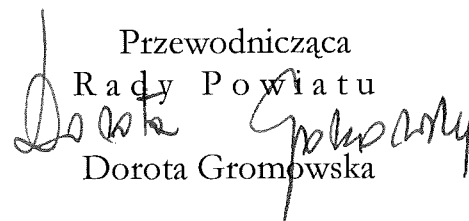 Przewodnicząca
Rady Powiatu
Dorota
Dorota Gromowska